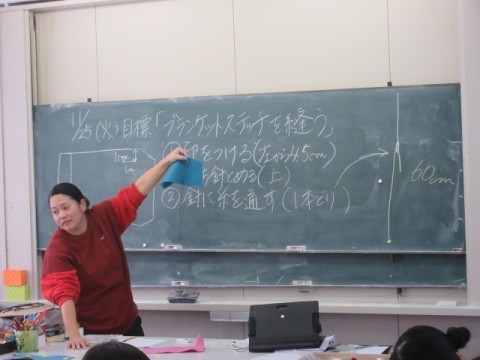 11/25 (火) 目標「ブランケットステッチを縫う」
印をつける(左から4.5cm)
針とめる(上)
② 針に糸を通す(1本どり)
60cm